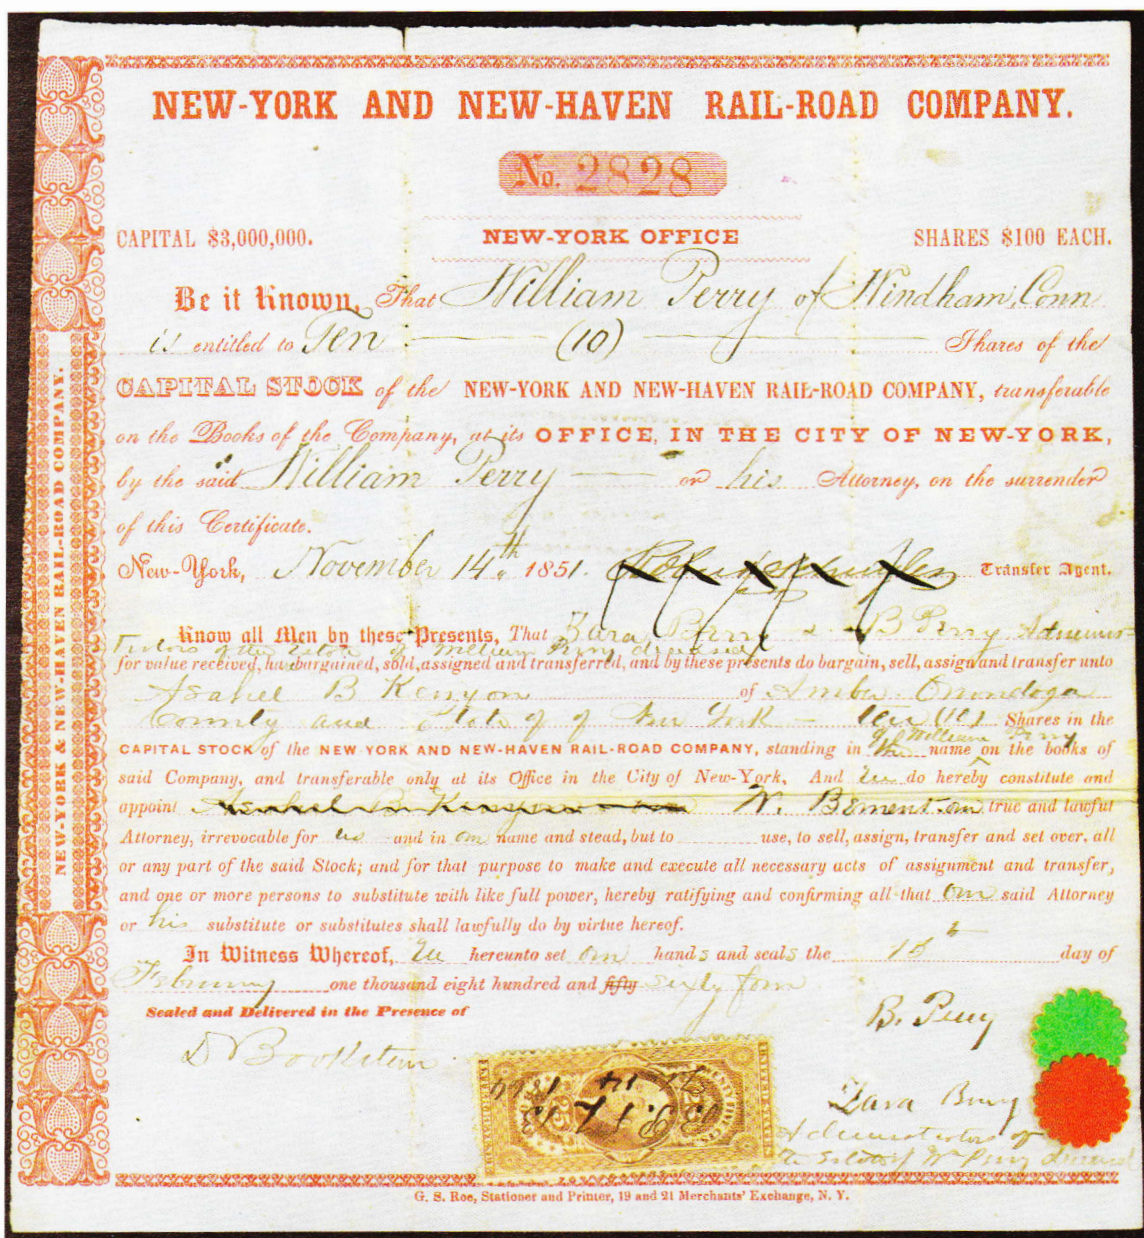 NEW-YORK AND NEW-HAVEN RAIL-ROAD COMPANY.
No. 2828
CAPITAL $3,000,000. NEW-YORK OFFICE SHARES $100 EACH.
Be it Known, That William Perry of Windham, Conn
is entitled to Ten (10) Shares of the
CAPITAL STOCK of the NEW-YORK AND NEW-HAVEN RAIL-ROAD COMPANY, transferable
on the Books of the Company, at its OFFICE, IN THE CITY OF NEW-YORK,
by the said William Perry or his Attorney, on the surrender
of this Certificate.
New-York, November 14th 1851. Transfer Agent.
Know all Men by these Presents, That Zara & B Perry Adminis-
trators of the Estate of William Perry deceased
for value received, have bargained, sold, assigned and transferred, and by these presents do bargain, sell, assign and transfer unto
Asahel B Kenyon of Amber Onondaga
County and State of New York Ten (10) Shares in the
of William Perry
CAPITAL STOCK of the NEW-YORK AND NEW-HAVEN RAIL-ROAD COMPANY, standing in the name on the books of
said Company, and transferable only at its Office in the City of New-York. And We do hereby constitute and
appoint W. Bement our true and lawful
Attorney, irrevocable for us and in our name and stead, but to use, to sell, assign, transfer and set over, all
or any part of the said Stock; and for that purpose to make and execute all necessary acts of assignment and transfer,
and one or more persons to substitute with like full power, hereby ratifying and confirming all that our said Attorney
or his substitute or substitutes shall lawfully do by virtue hereof.
In Witness Whereof, We hereunto set our hands and seals the day of
February one thousand eight hundred and fifty sixty four
Sealed and Delivered in the Presence of
B. Perry
D Bookstein
Zara
Administrators of
the Estate of Wm Perry deceased
NEW-YORK & NEW-HAVEN RAIL-ROAD COMPANY.
G. S. Roe, Stationer and Printer, 19 and 21 Merchants' Exchange, N. Y.